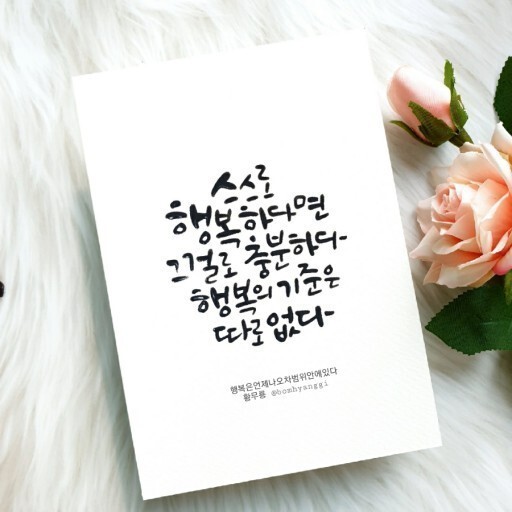 스스로
행복하다면
그걸로 충분하다
행복의 기준은
따로 없다
행복은언제나오차범위안에있다
황무룡 @bomhyanggi